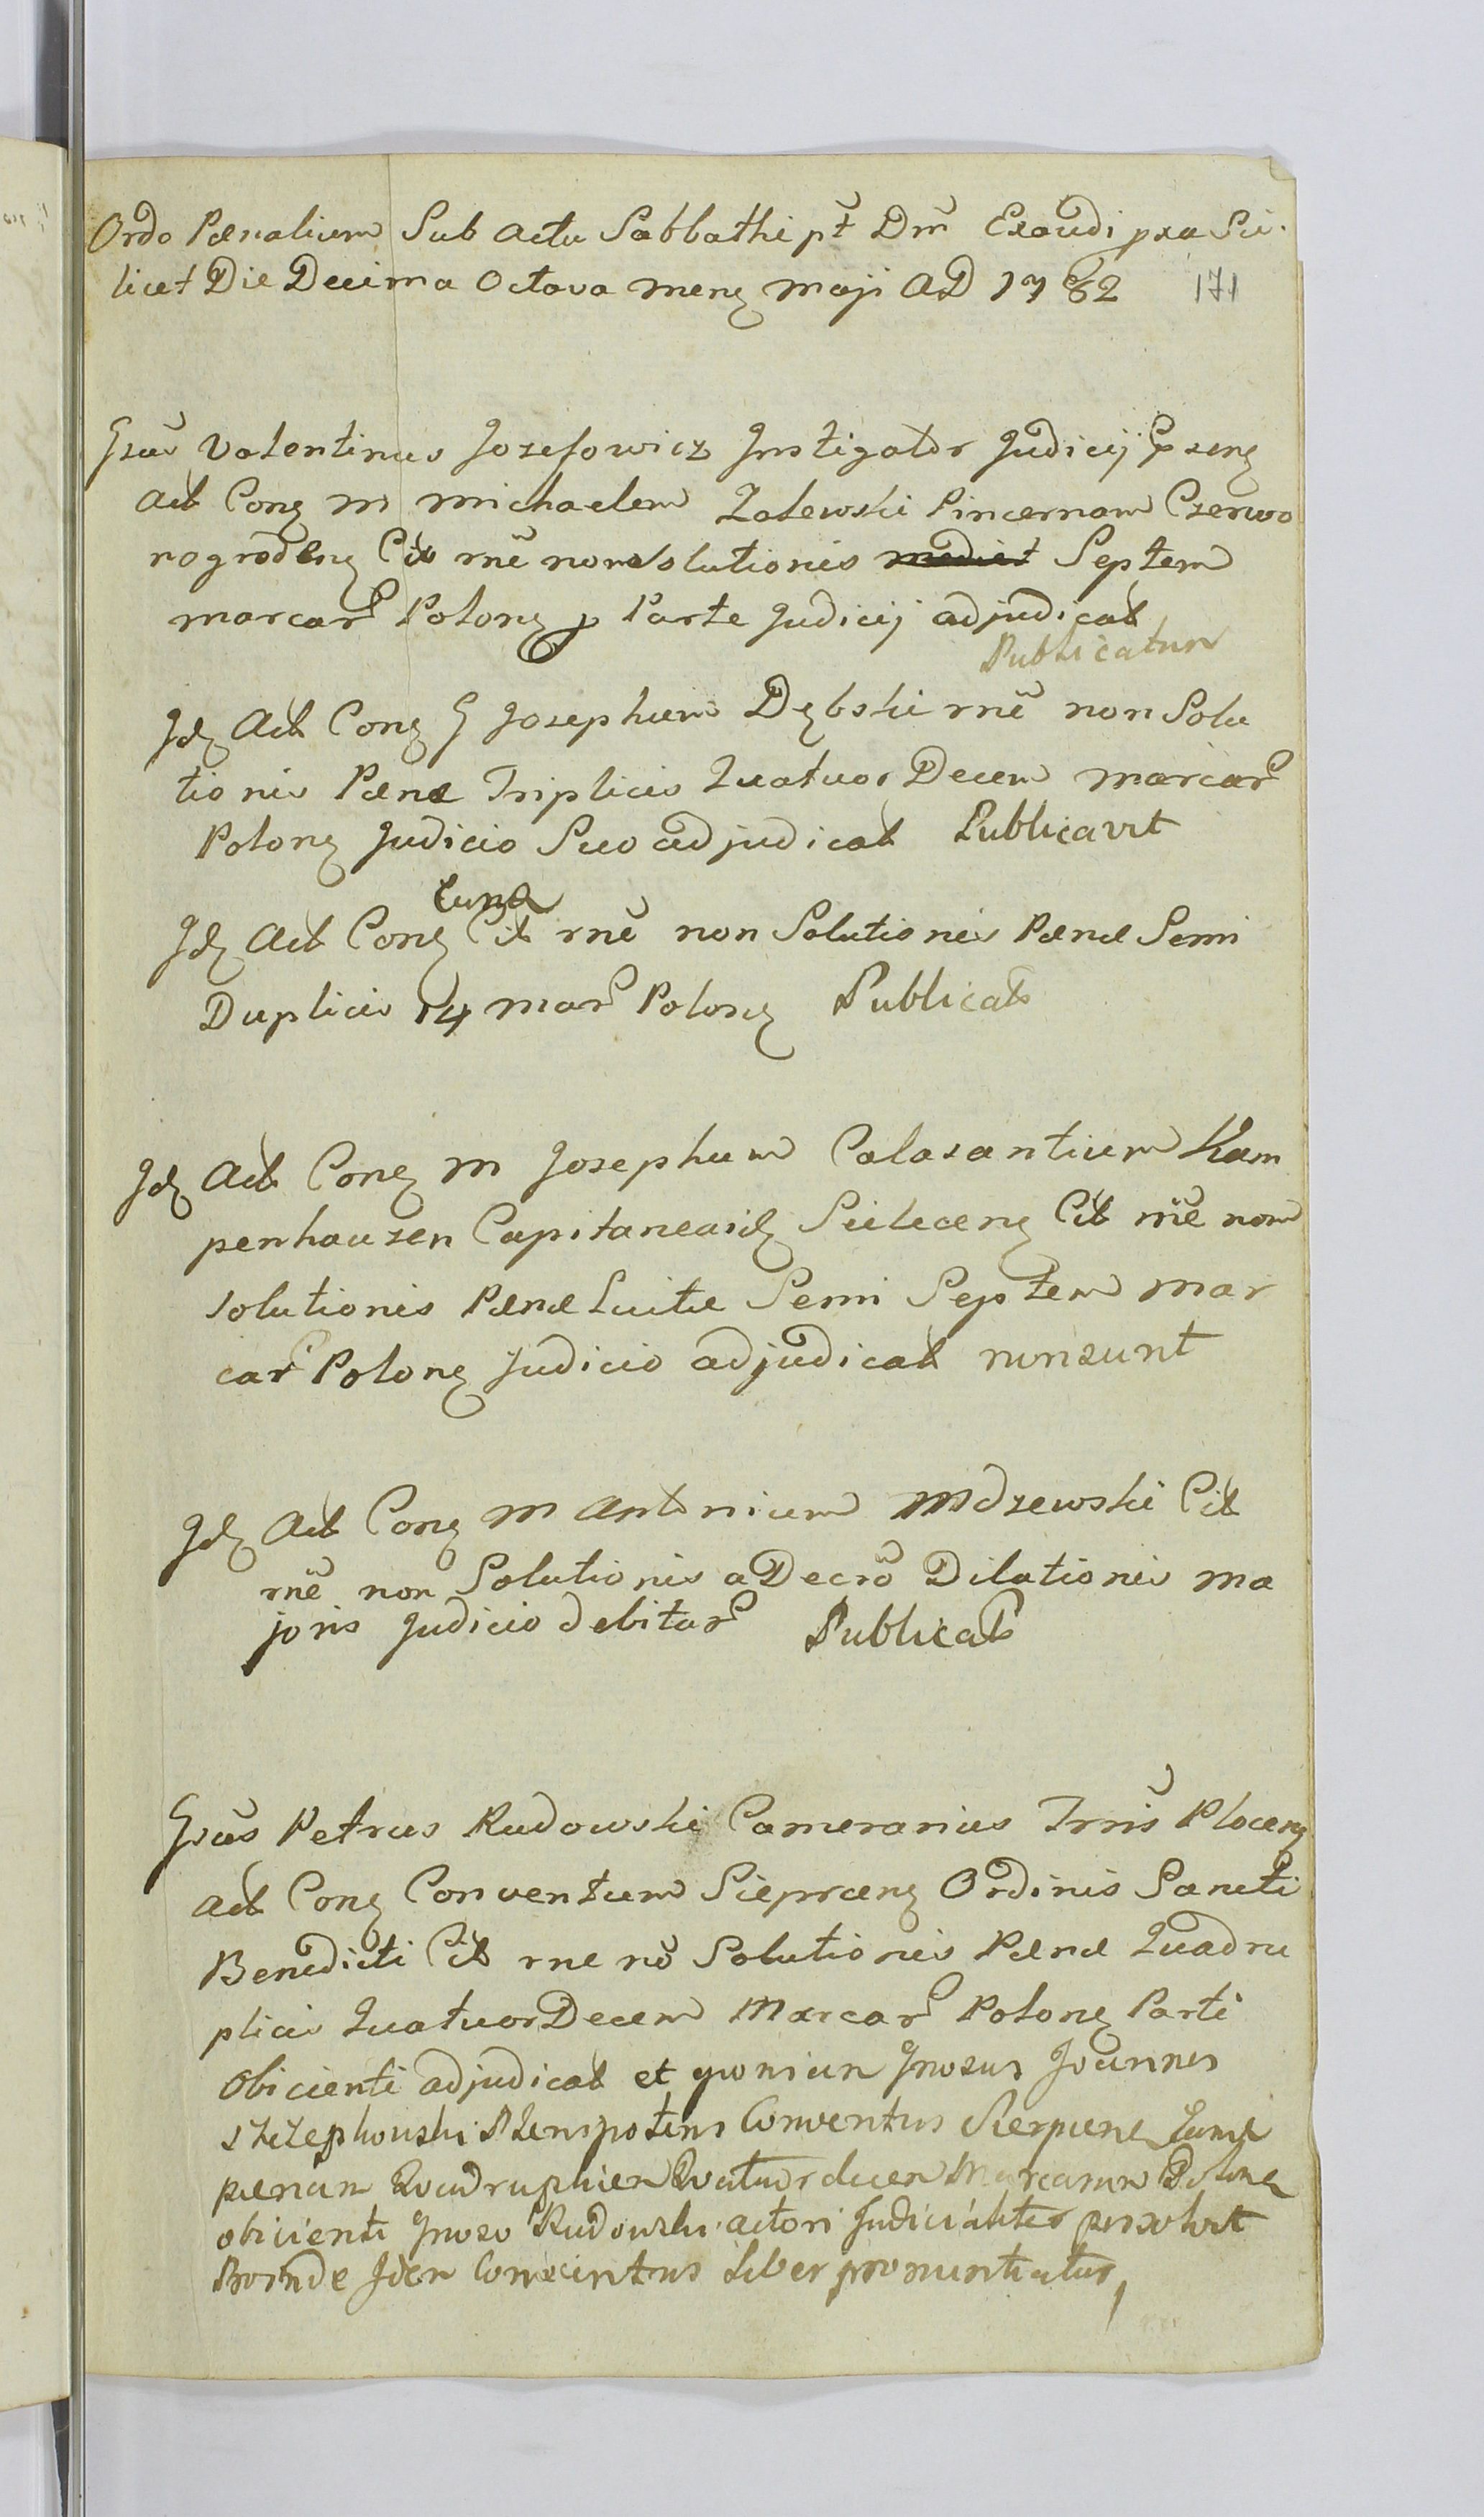 Ordo Pænalium Sub Actu Sabbathi pt Dm Exaudi pxa Sci
licet Die Decima Octava Mens Maji AD 1782 171
Gsus Valentinus Jozefowicz Instigator Judicij Psens
Act Cons M Michaelem Zalewski Pincernam Czerwo
nogrodens Cit rne non Solutionis mediet Septem
marcar Polons p Parte Judicij adjudicat
Publicatur
Jd Act Cons G Josephum Dębski rne non Solu
tionis Pænæ Triplicis Quatuor Decem marcar
Polons Judicio Suo adjudicat Publicavit
eund
Jd Act Cons Cit rne non Solutionis Pænæ Semi
Duplicis 14 mar Polons Publicat
Jd Act Cons M Josephum Calasantium Kam
penhausen Capitaneaid Sielecens Cit rne non
solutionis Pænæ Luitæ Semi Septem mar
car Polons Judicio adjudicat non sunt
Jd Act Cons M Antonium Mdzewski Cit
rne non Solutionis a Decro Dilationis ma
joris Judicio debitar Publicat
Gsus Petrus Rudowski Camerarius Trris Plocens
Act Cons Conventum Sieprcens Ordinis Sancti
Benedicti Cit rne no Solutionis Pænæ Quadru
plicis Quatuor Decem Marcar Polons Parti
Obicienti adjudicat et quoniam Gnosus Joannes
Plenipotens Conventus Sierpcens
pænam Quadruplicem Quatuor decem Marcarum Polons
obicienti Gnoso Rudowski actori Judicialiter persolvit
Proinde Idem Conventus Liber pronuntiatur